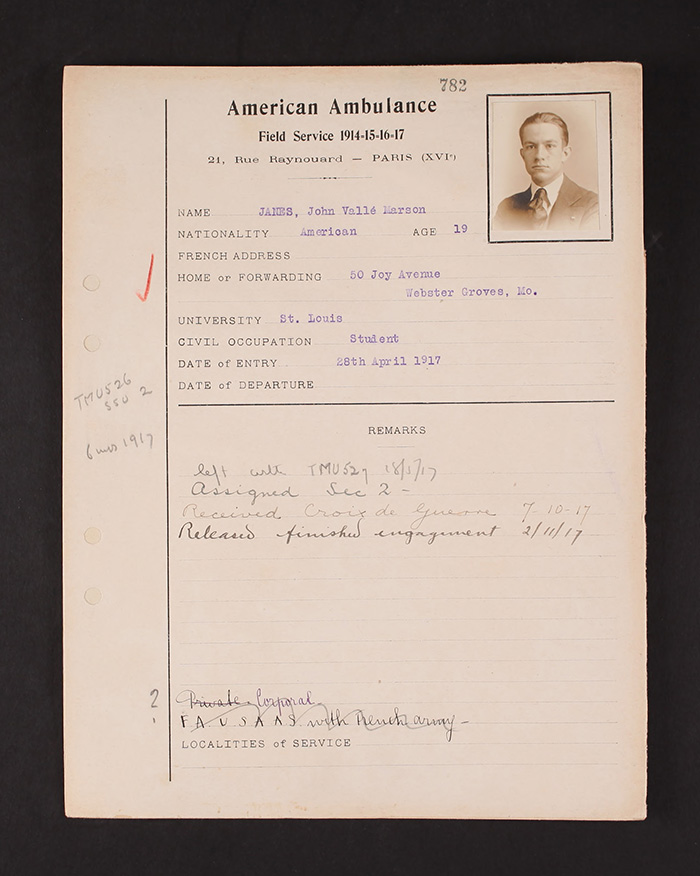 782
American Ambulance
Field Service 1914-15-16-17
21, Rue Raynouard — PARIS (XVIe)
NAME JANES, John Vallé Marson
NATIONALITY American AGE 19
FRENCH ADDRESS
HOME or FORWARDING 50 Joy Avenue
Webster Groves, Mo.
UNIVERSITY St. Louis
CIVIL OCCUPATION Student
DATE of ENTRY 28th April 1917
DATE of DEPARTURE
TMU526
SSU 2
6 mos 1917
REMARKS
left with TMU527 18/5/17
Assigned Sec 2 -
Received Croix de Guerre 7-10-17
Released finished engagement 2/11/17
2
Private Corporal
F A U S A A S with French army -
LOCALITIES of SERVICE